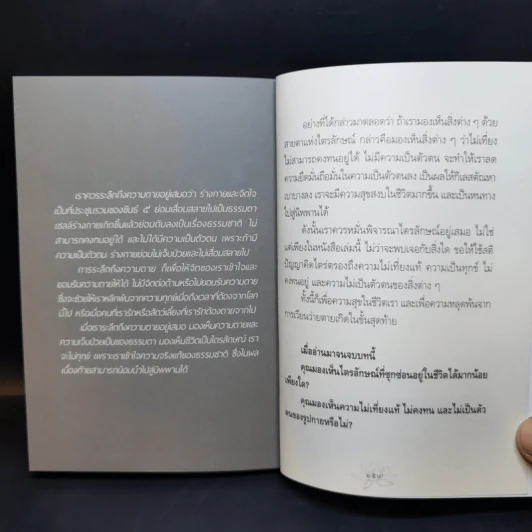 เราควรระลึกถึงความตายอยู่เสมอว่า ร่างกายและจิตใจ
เป็นที่ประชุมรวมของขันธ์ ๕ ย่อมเสื่อมสลายไปเป็นธรรมดา
เซลล์ร่างกายเกิดขึ้นแล้วย่อมดับลงเป็นเรื่องธรรมชาติ ไม่
สามารถคงทนอยู่ได้ และไม่ได้มีความเป็นตัวตน เพราะถ้ามี
ความเป็นตัวตน ร่างกายย่อมไม่เจ็บป่วยและไม่เสื่อมสลายไป
การระลึกถึงความตาย ก็เพื่อให้จิตของเราเข้าใจและ
ยอมรับความตายให้ได้ ไม่จิตต่อต้านหรือไม่ยอมรับความตาย
ซึ่งจะช่วยให้เราหลีกพ้นจากความทุกข์เมื่อถึงเวลาที่ต้องจากโลก
นี้ไป หรือเมื่อคนที่เรารักหรือสัตว์เลี้ยงที่เรารักต้องตายจากไป
เมื่อเราระลึกถึงความตายอยู่เสมอ มองเห็นความตายและ
ความเจ็บป่วยเป็นของธรรมดา มองเห็นชีวิตเป็นไตรลักษณ์ เรา
จะไม่ทุกข์ เพราะเราเข้าใจความจริงแท้ของธรรมชาติ ซึ่งในผล
เบื้องท้ายสามารถน้อมนำไปสู่นิพพานได้
อย่างที่ได้กล่าวมาตลอดว่า ถ้าเรามองเห็นสิ่งต่าง ๆ ด้วย
สายตาแห่งไตรลักษณ์ กล่าวคือมองเห็นสิ่งต่าง ๆ ว่าไม่เที่ยง
ไม่สามารถคงทนอยู่ได้ ไม่มีความเป็นตัวตน จะทำให้เราลด
ความยึดมั่นถือมั่นในความเป็นตัวตนลง เป็นผลให้กิเลสตัณหา
เบาบางลง เราจะมีความสุขสงบในชีวิตมากขึ้น และเป็นหนทาง
ไปสู่นิพพานได้
ดังนั้นเราควรหมั่นพิจารณาไตรลักษณ์อยู่เสมอ ไม่ใช่
แต่เพียงในหนังสือเล่มนี้ ไม่ว่าจะพบเจอกับสิ่งใด ขอให้ใช้สติ
ปัญญาคิดไตร่ตรองถึงความไม่เที่ยงแท้ ความเป็นทุกข์ ไม่
คงทนอยู่ และความไม่เป็นตัวตนของสิ่งต่าง ๆ
ทั้งนี้ก็เพื่อความสุขในชีวิตเรา และเพื่อความหลุดพ้นจาก
การเวียนว่ายตายเกิดในขั้นสุดท้าย
เมื่ออ่านมาจนจบบทนี้
คุณมองเห็นไตรลักษณ์ที่ซุกซ่อนอยู่ในชีวิตได้มากน้อย
เพียงใด?
คุณมองเห็นความไม่เที่ยงแท้ ไม่คงทน และไม่เป็นตัว
ตนของรูปกายหรือไม่?